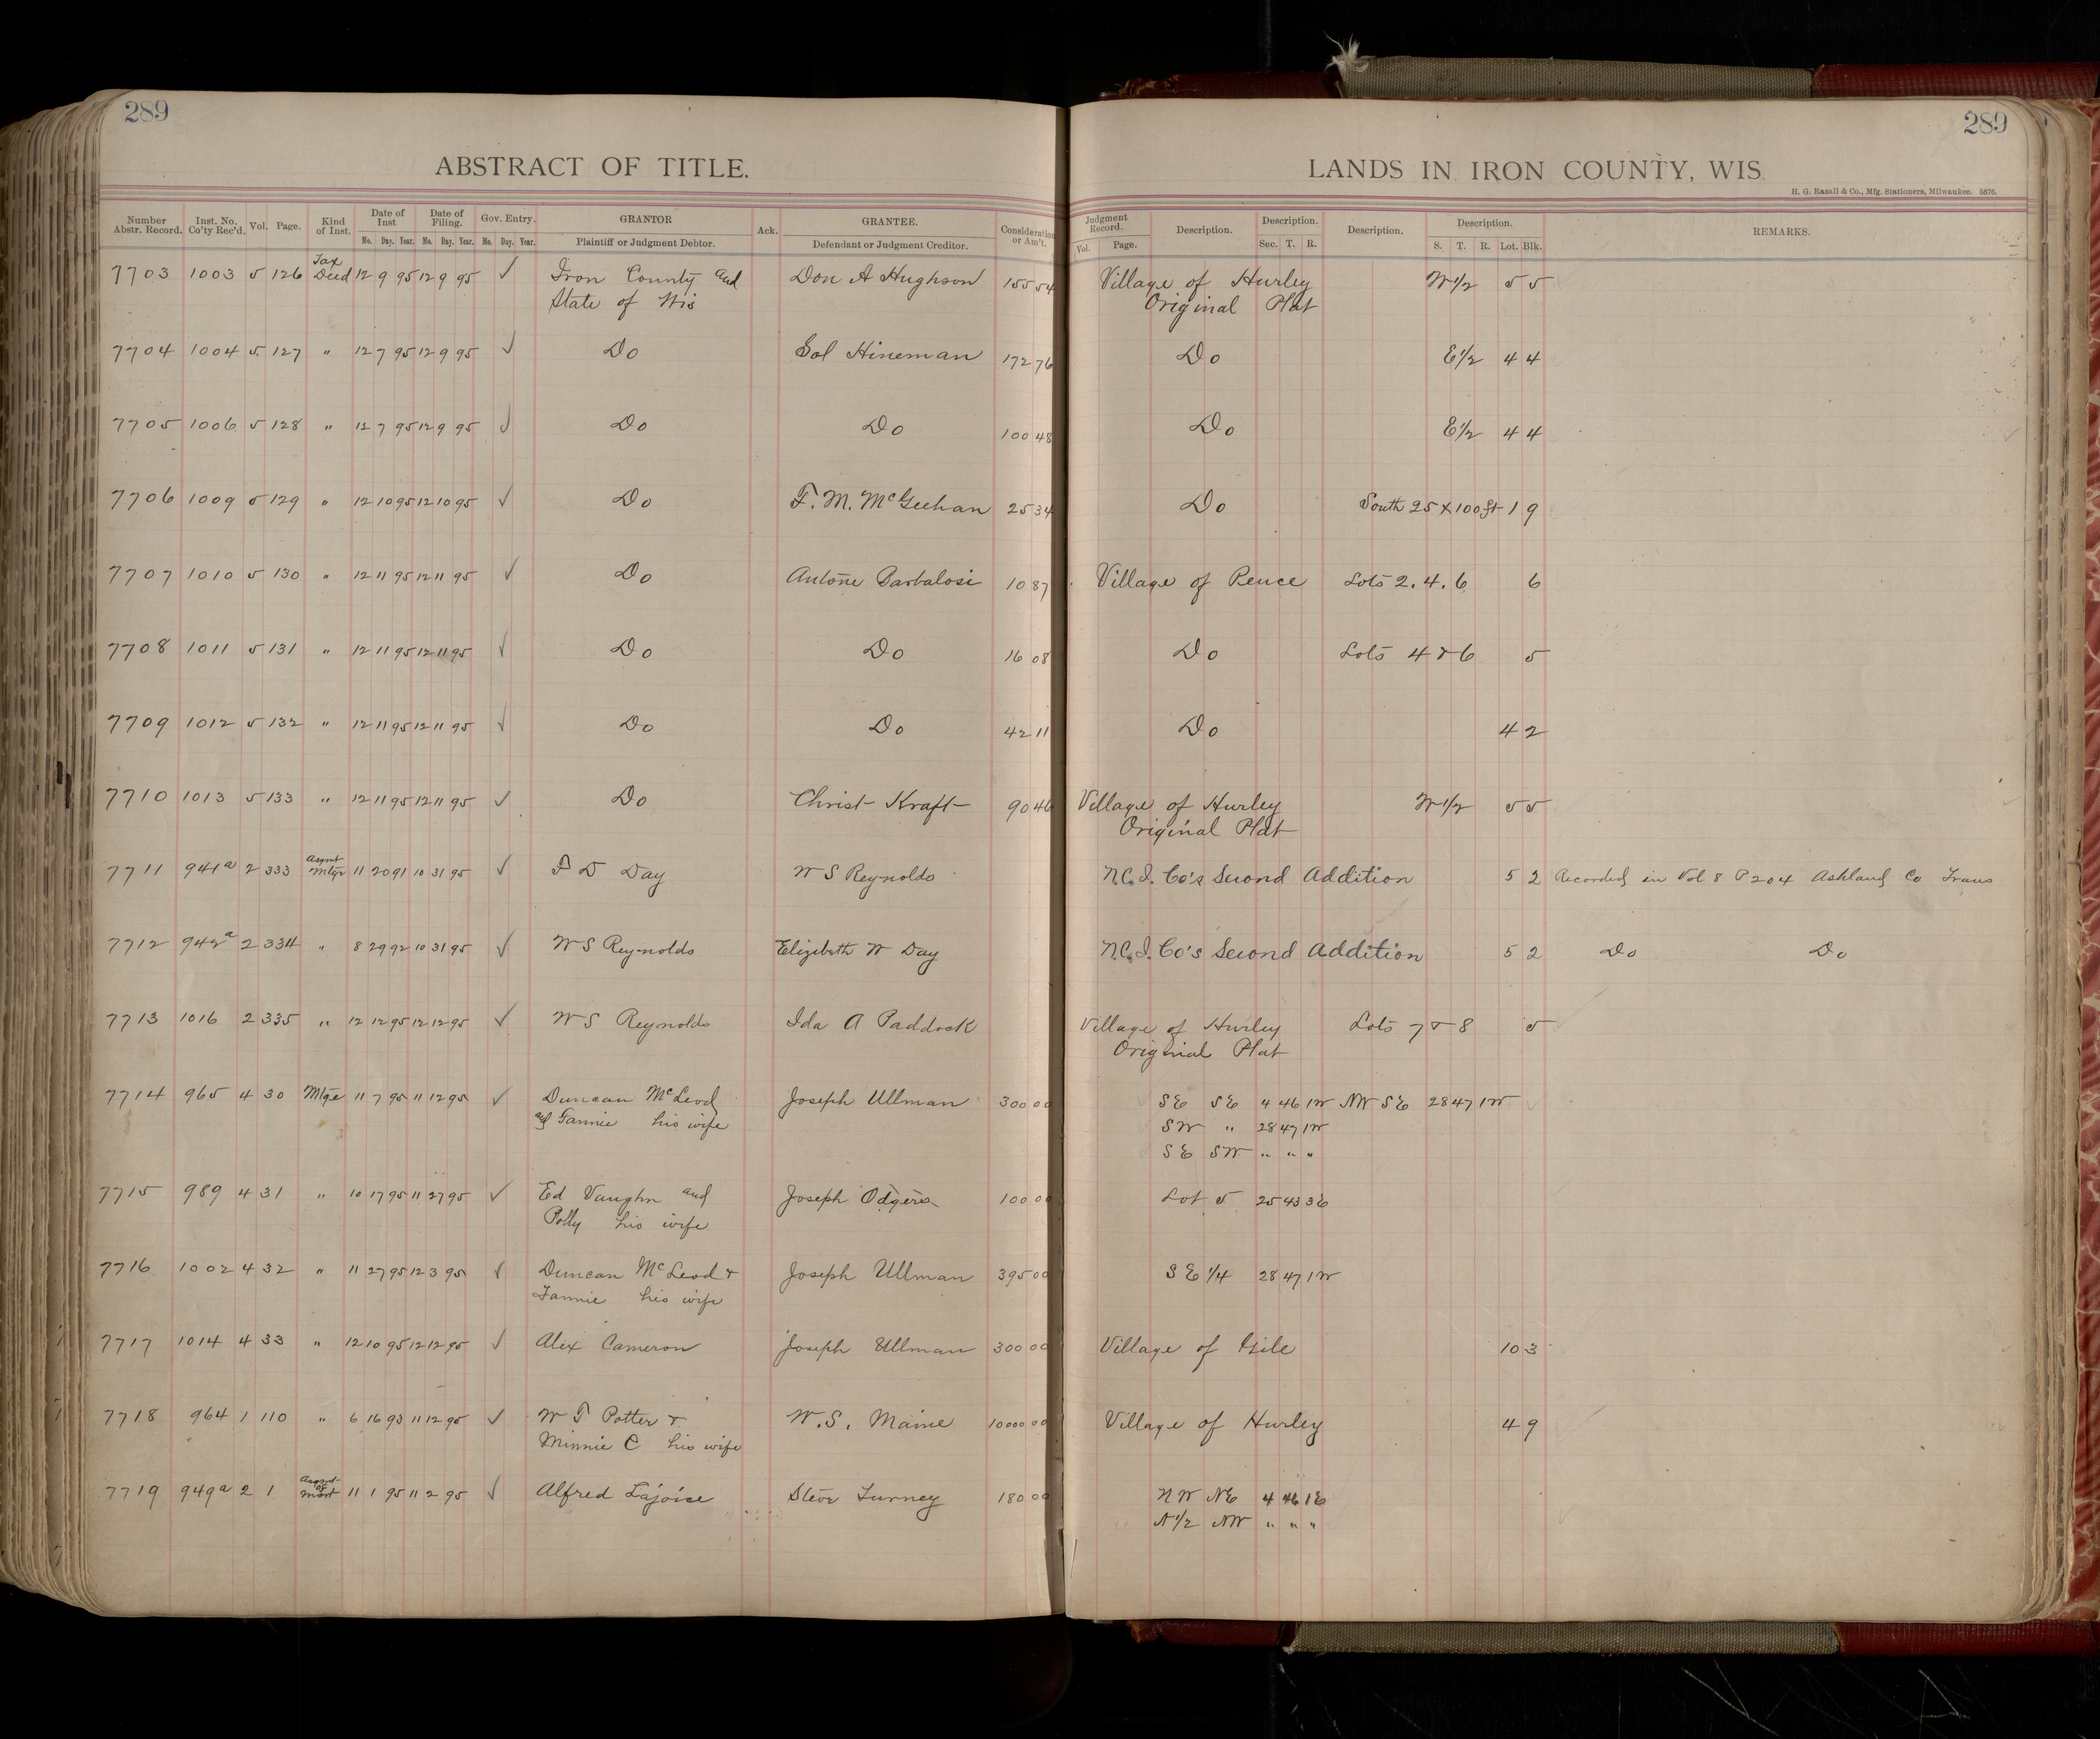 289
289
ABSTRACT OF TITLE.
LANDS IN IRON COUNTY, WIS
H. G. Razall & Co., Mfg. Stationers, Milwaukee. 5876.
Number Abstr. Record. Inst. No. Co'ty Rec'd. Vol. Page. Kind of Inst. Date of Inst Mo. Day. Year. Date of Filing. Mo. Day. Year. Gov. Entry. Mo. Day. Year. GRANTOR Plaintiff or Judgment Debtor. Ack. GRANTEE. Defendant or Judgment Creditor. Consideration or Am't. Judgment Record. Vol. Page. Description. Description. Sec. T. R. Description. Description. S. T. R. Lot. Blk. REMARKS.
7703 1003 5 126 Tax Deed 12 9 95 12 9 95 ✓ Iron County and Don A Hughson 155 54 Village of Hurley W 1/2 5 5
State of Wis Original Plat
7704 1004 5 127 " 12 7 95 12 9 95 ✓ Do Sol Hineman 172 76 Do E 1/2 4 4
7705 1006 5 128 " 12 7 95 12 9 95 ✓ Do Do 100 48 Do E 1/2 4 4
7706 1009 5 129 " 12 10 95 12 10 95 ✓ Do F. M. McGeehan 25 34 Do South 25 x 100 ft 1 9
7707 1010 5 130 " 12 11 95 12 11 95 ✓ Do Antone Barbalosi 10 87 Village of Pence Lots 2. 4. 6 6
7708 1011 5 131 " 12 11 95 12 11 95 ✓ Do Do 16 08 Do Lots 4 & 6 5
7709 1012 5 132 " 12 11 95 12 11 95 ✓ Do Do 42 11 Do 4 2
7710 1013 5 133 " 12 11 95 12 11 95 ✓ Do Christ Kraft 90 46 Village of Hurley W 1/2 5 5
Original Plat
7711 941a 2 333 Asgmt Mtge 11 20 91 10 31 95 ✓ F D Day W S Reynolds N.C.I. Co's Second Addition 5 2 Recorded in Vol 8 P 204 Ashland Co Trans
7712 942a 2 334 " 8 29 92 10 31 95 ✓ W S Reynolds Elizibeth W Day N.C.I. Co's Second Addition 5 2 Do Do
7713 1016 2 335 " 12 12 95 12 12 95 ✓ W S Reynolds Ida A Paddock Village of Hurley Lots 7 & 8 5
Original Plat
7714 965 4 30 Mtge 11 7 95 11 12 95 ✓ Duncan McLeod Joseph Ullman 300 00 SE SE 4 46 1W NW SE 28 47 1W
and Fannie his wife SW " 28 47 1W
SE SW " " "
7715 989 4 31 " 10 17 95 11 27 95 ✓ Ed Vaughn and Joseph Odgers 100 00 Lot 5 25 43 3E
Polly his wife
7716 1002 4 32 " 11 27 95 12 3 95 ✓ Duncan McLeod & Joseph Ullman 395 00 SE 1/4 28 47 1W
Fannie his wife
7717 1014 4 33 " 12 10 95 12 12 95 ✓ Alex Cameron Joseph Ullman 300 00 Village of Gile 10 3
7718 964 1 110 " 6 16 93 11 12 95 ✓ W F Potter & W. S. Maine 10000 00 Village of Hurley 4 9
Minnie C his wife
7719 949a 2 1 Asgmt of Mort 11 1 95 11 2 95 ✓ Alfred Lajoice Steve Turney 180 00 NW NE 4 46 1E
N 1/2 NW " " "